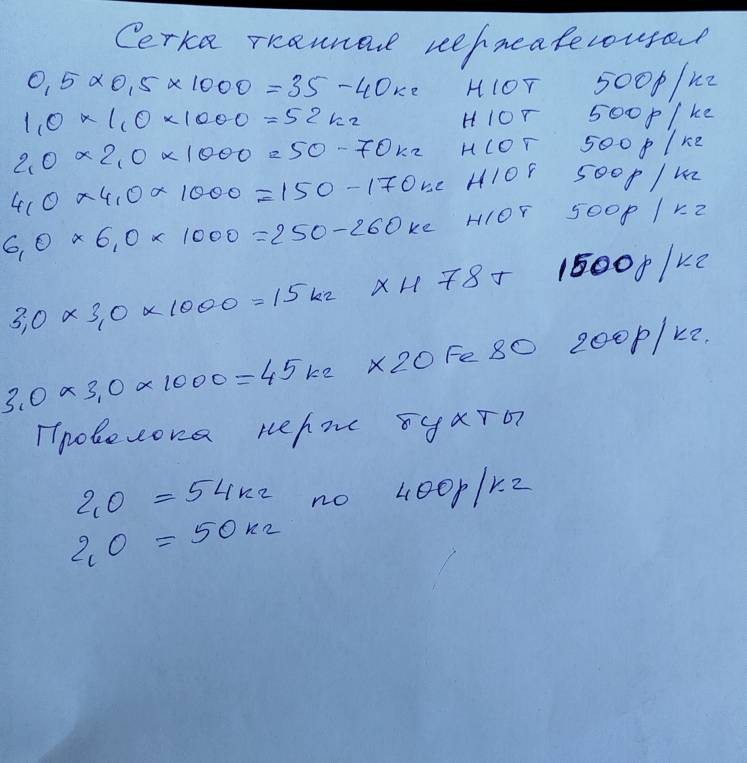 Сетка тканная нержавеющая
0,5 × 0,5 × 1000 = 35 - 40 кг Н10Т 500р/кг
1,0 × 1,0 × 1000 = 52 кг Н10Т 500р/кг
2,0 × 2,0 × 1000 = 50 - 70 кг Н10Т 500р/кг
4,0 × 4,0 × 1000 = 150 - 170 кг Н10Т 500р/кг
6,0 × 6,0 × 1000 = 250 - 260 кг Н10Т 500р/кг
3,0 × 3,0 × 1000 = 15 кг ХН78Т 1500р/кг
3,0 × 3,0 × 1000 = 45 кг Х20Fe80 200р/кг.
Проволока нерж бухты
2,0 = 54 кг по 400р/кг
2,0 = 50 кг